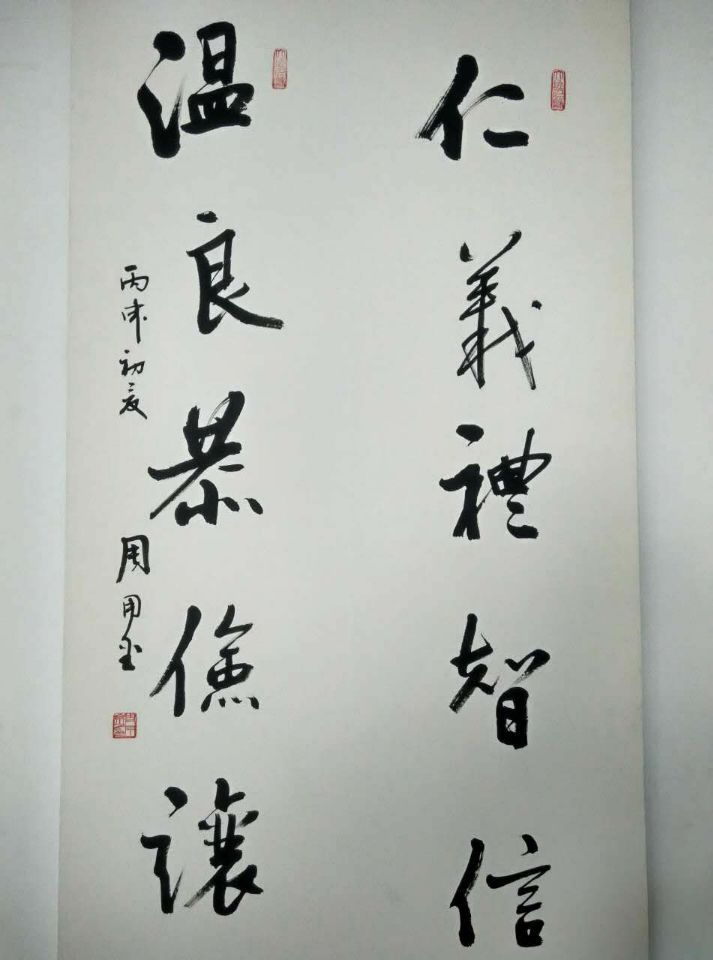 仁義禮智信
温良恭儉讓
丙申初夏
周用金